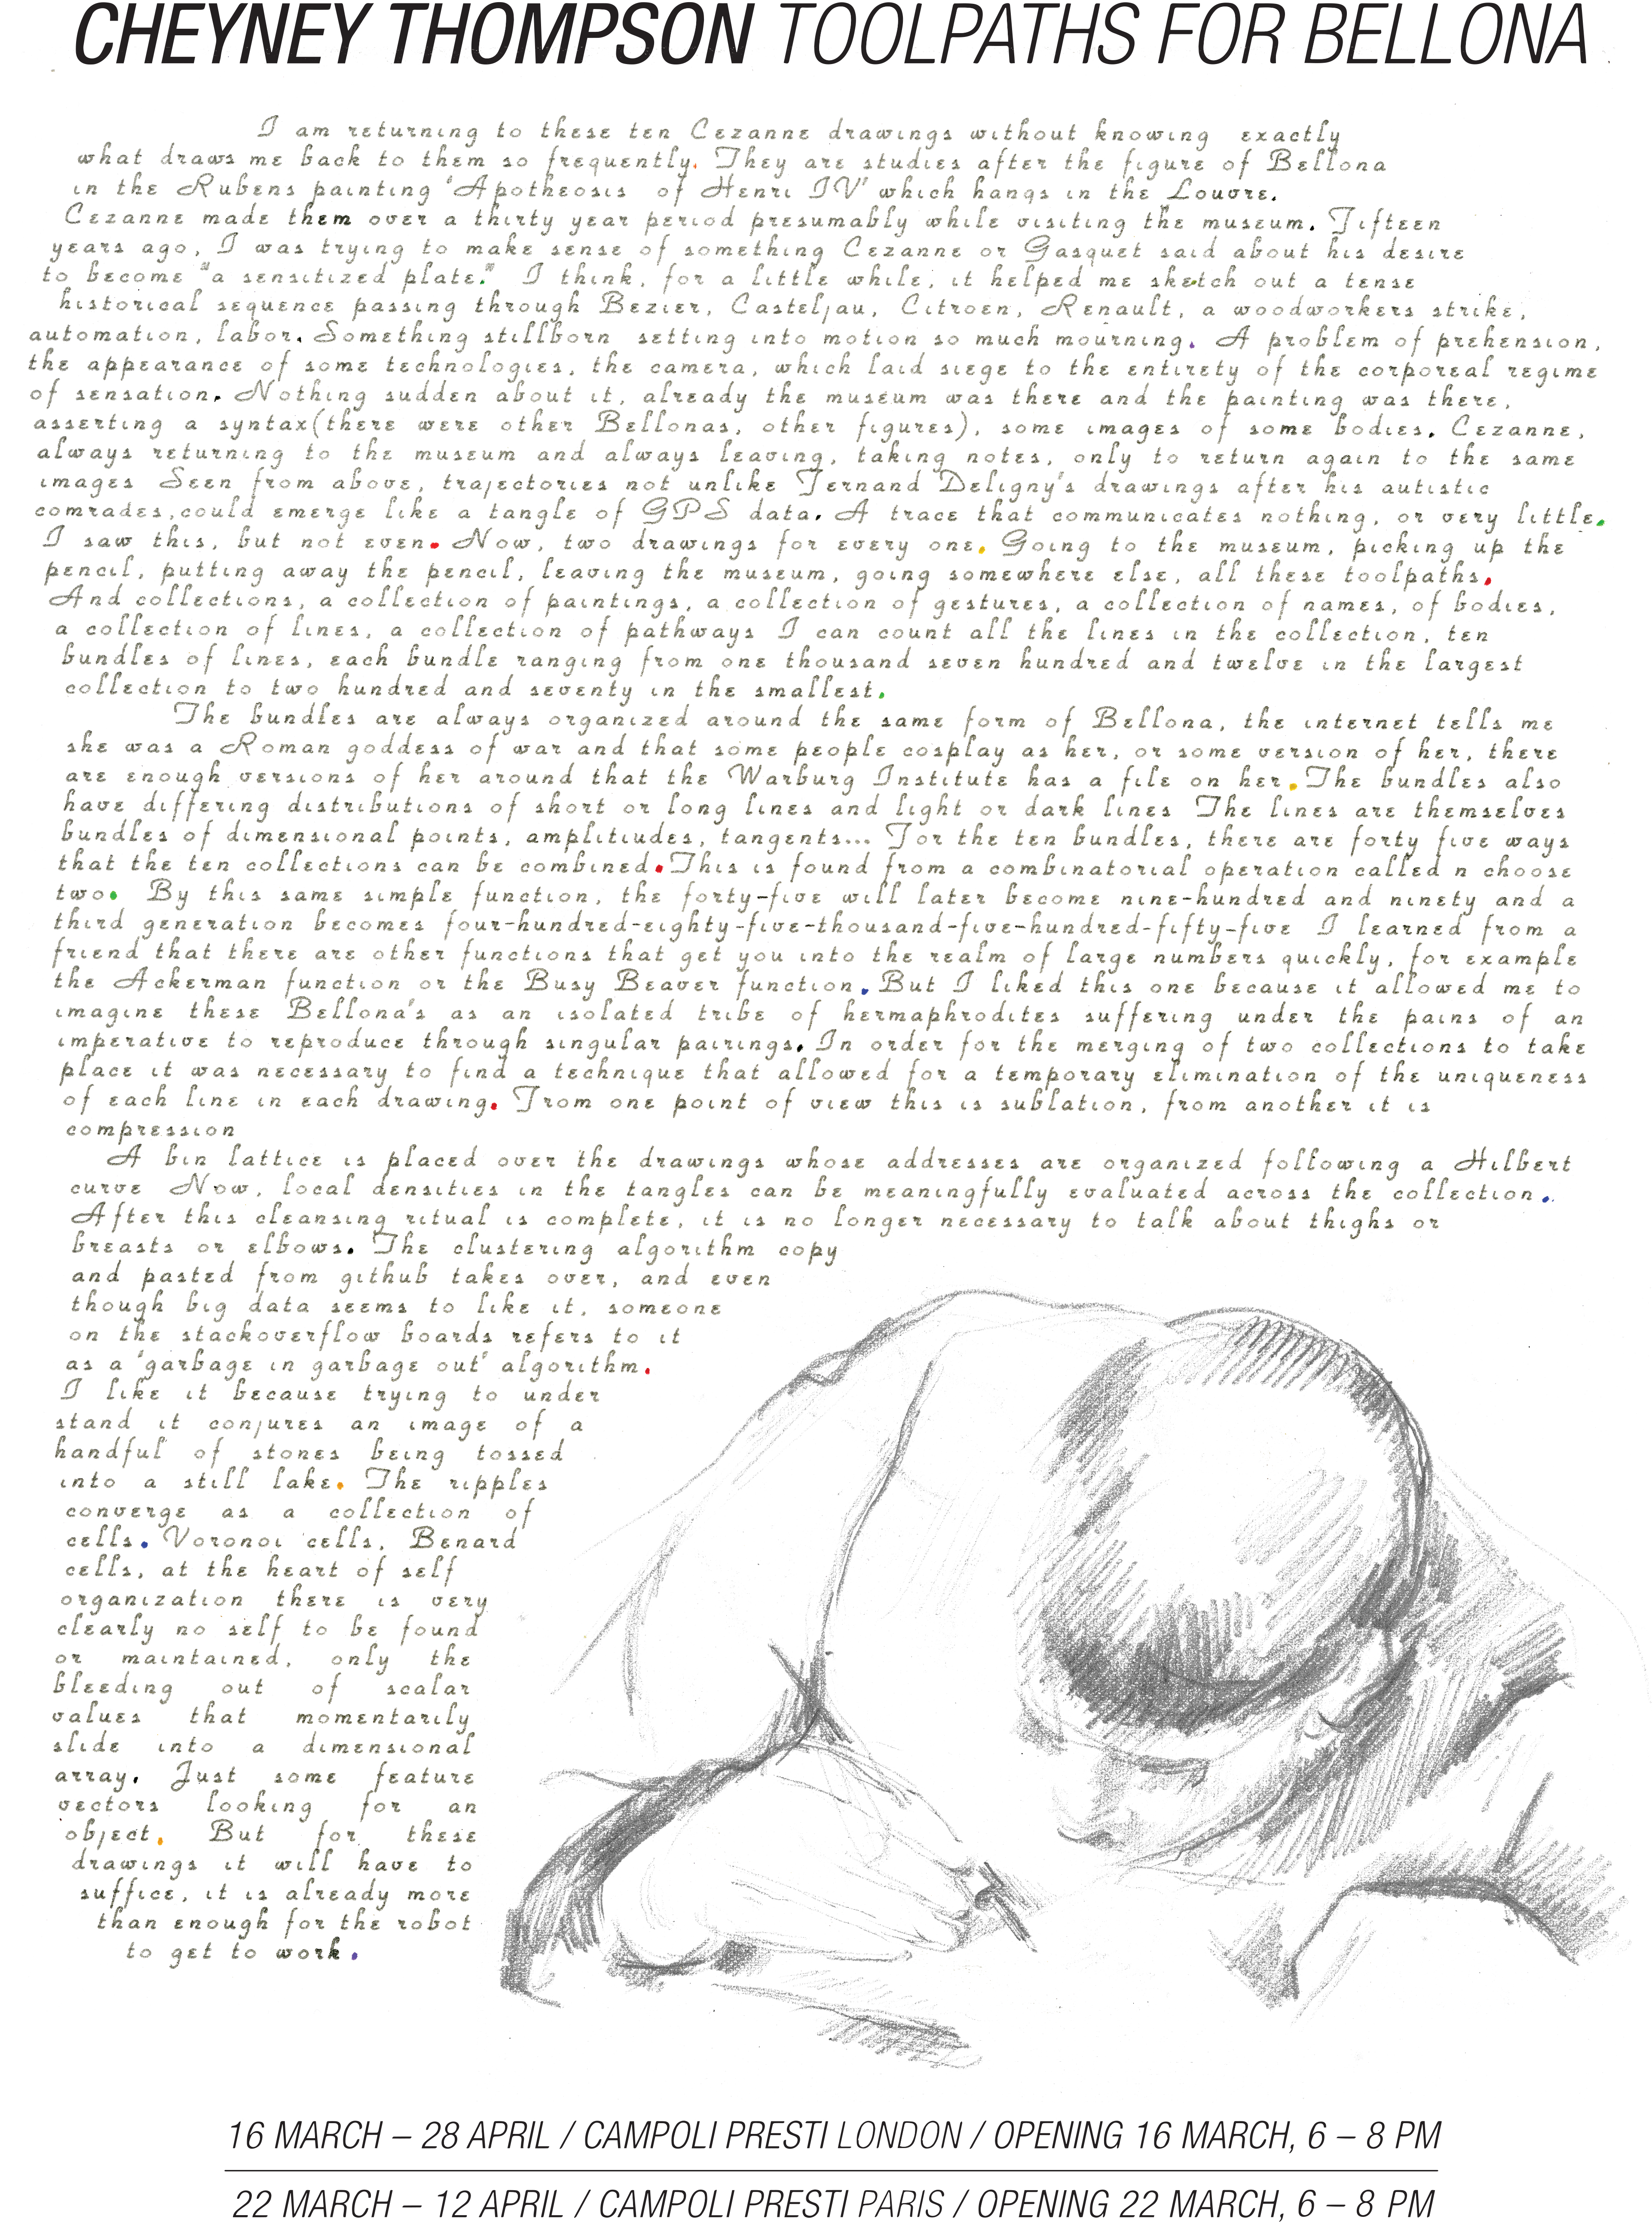 CHEYNEY THOMPSON TOOLPATHS FOR BELLONA
I am returning to these ten Cezanne drawings without knowing exactly
what draws me back to them so frequently. They are studies after the figure of Bellona
in the Rubens painting 'Apotheosis of Henri IV' which hangs in the Louvre.
Cezanne made them over a thirty year period presumably while visiting the museum. Fifteen
years ago, I was trying to make sense of something Cezanne or Gasquet said about his desire
to become "a sensitized plate." I think, for a little while, it helped me sketch out a tense
historical sequence passing through Bezier, Casteljau, Citroen, Renault, a woodworkers strike,
automation, labor. Something stillborn setting into motion so much mourning. A problem of prehension,
the appearance of some technologies, the camera, which laid siege to the entirety of the corporeal regime
of sensation. Nothing sudden about it, already the museum was there and the painting was there,
asserting a syntax(there were other Bellonas, other figures), some images of some bodies. Cezanne,
always returning to the museum and always leaving, taking notes, only to return again to the same
images Seen from above, trajectories not unlike Fernand Deligny's drawings after his autistic
comrades,could emerge like a tangle of GPS data. A trace that communicates nothing, or very little.
I saw this, but not even. Now, two drawings for every one. Going to the museum, picking up the
pencil, putting away the pencil, leaving the museum, going somewhere else, all these toolpaths.
And collections, a collection of paintings, a collection of gestures, a collection of names, of bodies,
a collection of lines, a collection of pathways I can count all the lines in the collection, ten
bundles of lines, each bundle ranging from one thousand seven hundred and twelve in the largest
collection to two hundred and seventy in the smallest.
The bundles are always organized around the same form of Bellona, the internet tells me
she was a Roman goddess of war and that some people cosplay as her, or some version of her, there
are enough versions of her around that the Warburg Institute has a file on her. The bundles also
have differing distributions of short or long lines and light or dark lines The lines are themselves
bundles of dimensional points, amplitiudes, tangents... For the ten bundles, there are forty five ways
that the ten collections can be combined. This is found from a combinatorial operation called n choose
two. By this same simple function, the forty-five will later become nine-hundred and ninety and a
third generation becomes four-hundred-eighty-five-thousand-five-hundred-fifty-five I learned from a
friend that there are other functions that get you into the realm of large numbers quickly, for example
the Ackerman function or the Busy Beaver function. But I liked this one because it allowed me to
imagine these Bellona's as an isolated tribe of hermaphrodites suffering under the pains of an
imperative to reproduce through singular pairings. In order for the merging of two collections to take
place it was necessary to find a technique that allowed for a temporary elimination of the uniqueness
of each line in each drawing. From one point of view this is sublation, from another it is
compression
A bin lattice is placed over the drawings whose addresses are organized following a Hilbert
curve Now, local densities in the tangles can be meaningfully evaluated across the collection.
After this cleansing ritual is complete, it is no longer necessary to talk about thighs or
breasts or elbows. The clustering algorithm copy
and pasted from github takes over, and even
though big data seems to like it, someone
on the stackoverflow boards refers to it
as a 'garbage in garbage out' algorithm.
I like it because trying to under
stand it conjures an image of a
handful of stones being tossed
into a still lake. The ripples
converge as a collection of
cells. Voronoi cells, Benard
cells, at the heart of self
organization there is very
clearly no self to be found
or maintained, only the
bleeding out of scalar
values that momentarily
slide into a dimensional
array. Just some feature
vectors looking for an
object. But for these
drawings it will have to
suffice, it is already more
than enough for the robot
to get to work.
16 MARCH – 28 APRIL / CAMPOLI PRESTI LONDON / OPENING 16 MARCH, 6 – 8 PM
22 MARCH – 12 APRIL / CAMPOLI PRESTI PARIS / OPENING 22 MARCH, 6 – 8 PM